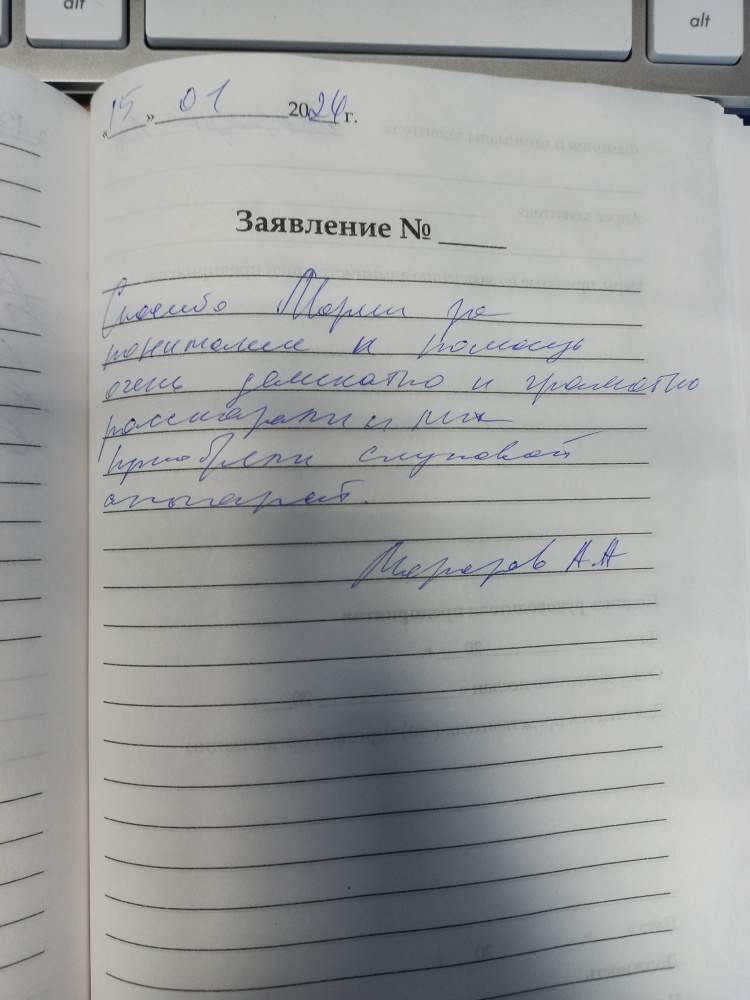 alt
alt
«15» 01 2024 г.
Заявление № ____
Спасибо Марии за
понимание и помощь
очень деликатно и грамотно
рассказали и мы
приобрели слуховой
аппарат.
А.А